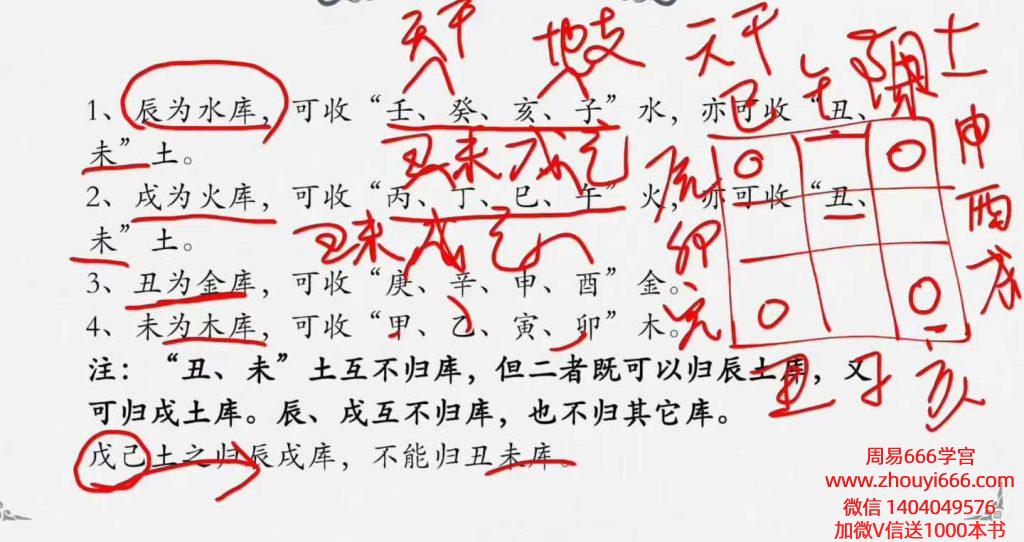 天干 地支 天干
巳 午 未 土
1、辰为水库，可收“壬、癸、亥、子”水，亦可收“丑、
未”土。
丑未戊己
辰 申
2、戌为火库，可收“丙、丁、巳、午”火，亦可收“丑、
未”土。
丑未戊己
卯 酉
3、丑为金库，可收“庚、辛、申、酉”金。
寅 戌
4、未为木库，可收“甲、乙、寅、卯”木。
注：“丑、未”土互不归库，但二者既可以归辰土库，又
可归戌土库。辰、戌互不归库，也不归其它库。
丑 子 亥
戊己土之归辰戌库，不能归丑未库。
周易666学宫
www.zhouyi666.com
微信 1404049576
加微V信送1000本书